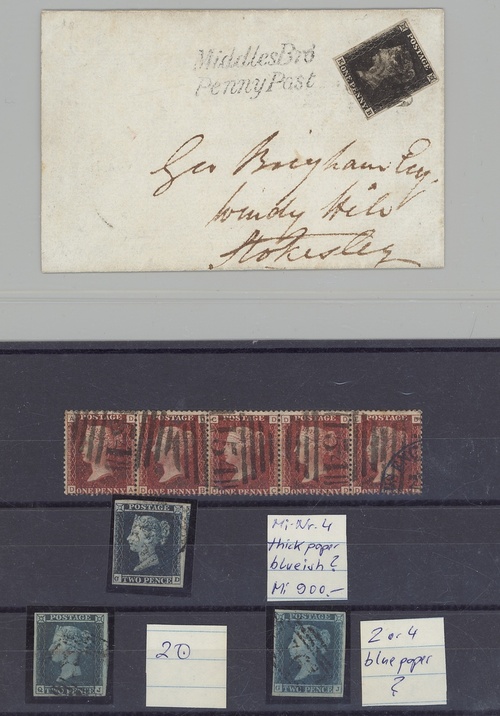 MiddlesBro
Penny Post
POSTAGE
ONE PENNY
Geo Brigham Esq.
Windy Hill
Stokesley
POSTAGE POSTAGE POSTAGE POSTAGE POSTAGE
ONE PENNY ONE PENNY ONE PENNY ONE PENNY ONE PENNY
POSTAGE
TWO PENCE
Mi-Nr. 4
thick paper
blueish ?
Mi 900.-
POSTAGE
TWO PENCE
2
POSTAGE
TWO PENCE
2 or 4
blue paper
?